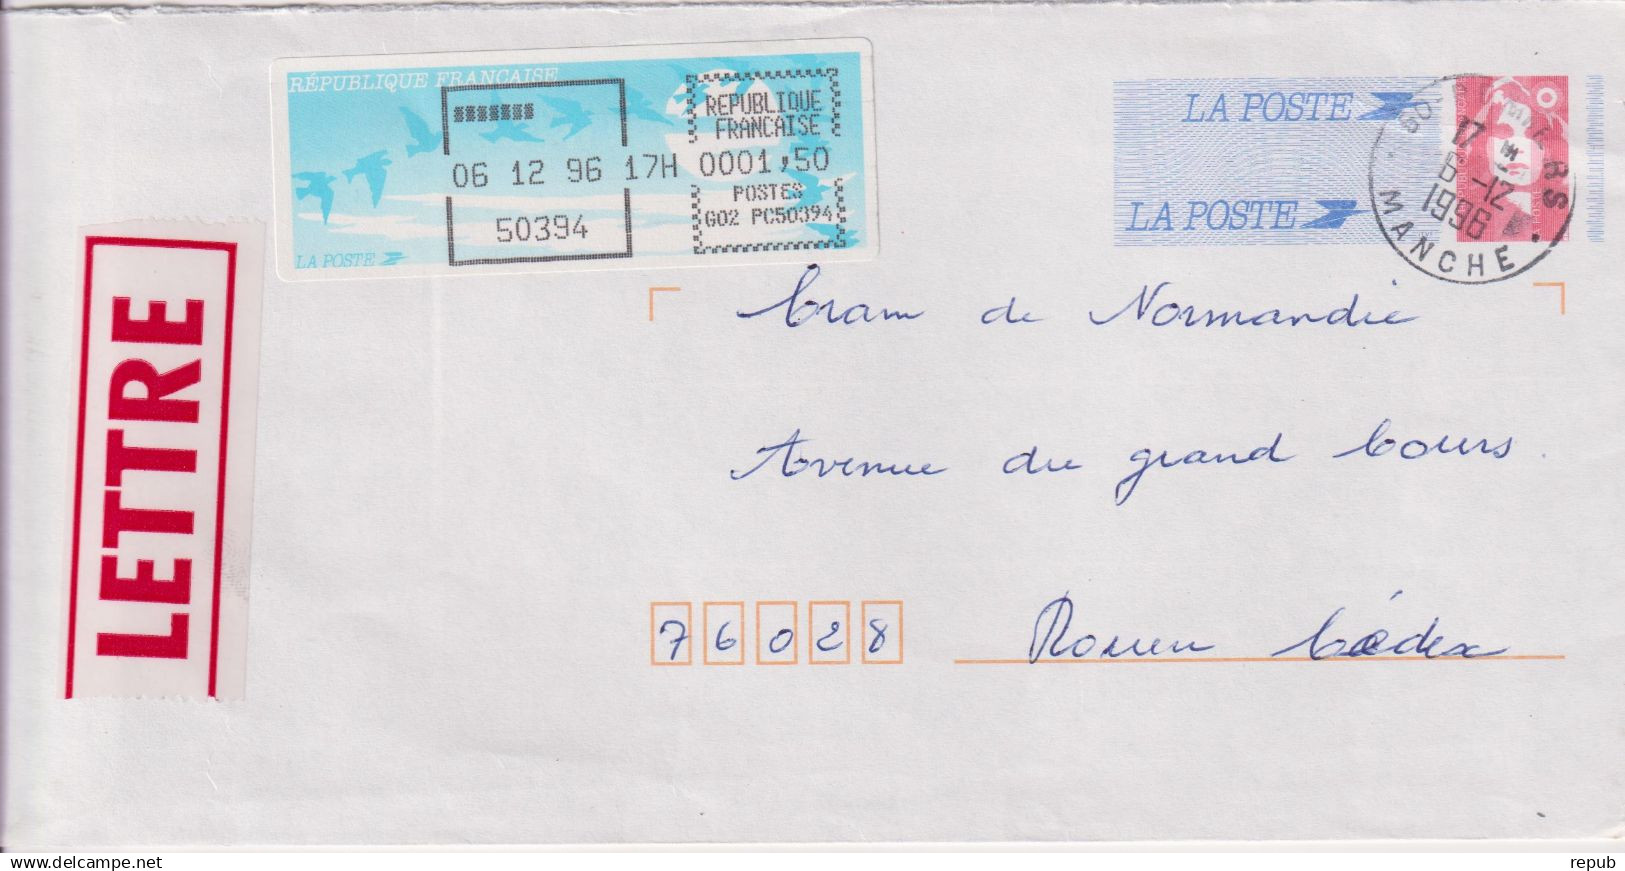 RÉPUBLIQUE FRANÇAISE
06 12 96 17H
50394
LA POSTE
REPUBLIQUE
FRANCAISE
0001,50
POSTES
G02 PC50394
LA POSTE
LA POSTE
17 H
6-12
1996
MANCHE
LETTRE
Cram de Normandie
Avenue du grand Cours.
76028 Rouen Cédex
delcampe.net
repub